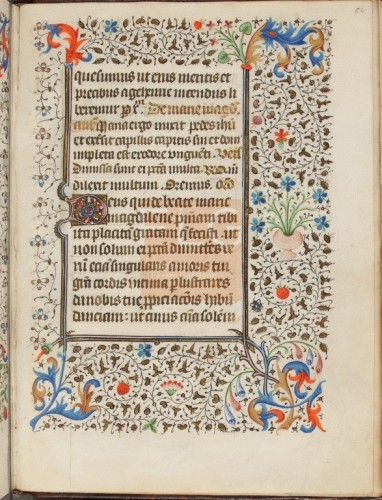 quesumus ut eius meritis et
precibus a gehenne incendiis li
beremur p xp̄. De marie magd
Maria ergo unxit pedes ihū
et exͭsit capillis capitis sui et dom
impleta est ex odore ungueti. Vers̄
Dimissa sunt ei pctā multa. Qm̄
dilexit multum. Oremus. Oro
Deus qui beate marie
magdalene pn̄iam tibi
ita placitā gratam q̄ fecisti. ut
non solum ei pctā dimitteres ve
rum eciā singularis amoris tui
grā cordis intima p̲lustrares
da nobis tue ppiciacōis habun
danciam: ut cuius cum solem